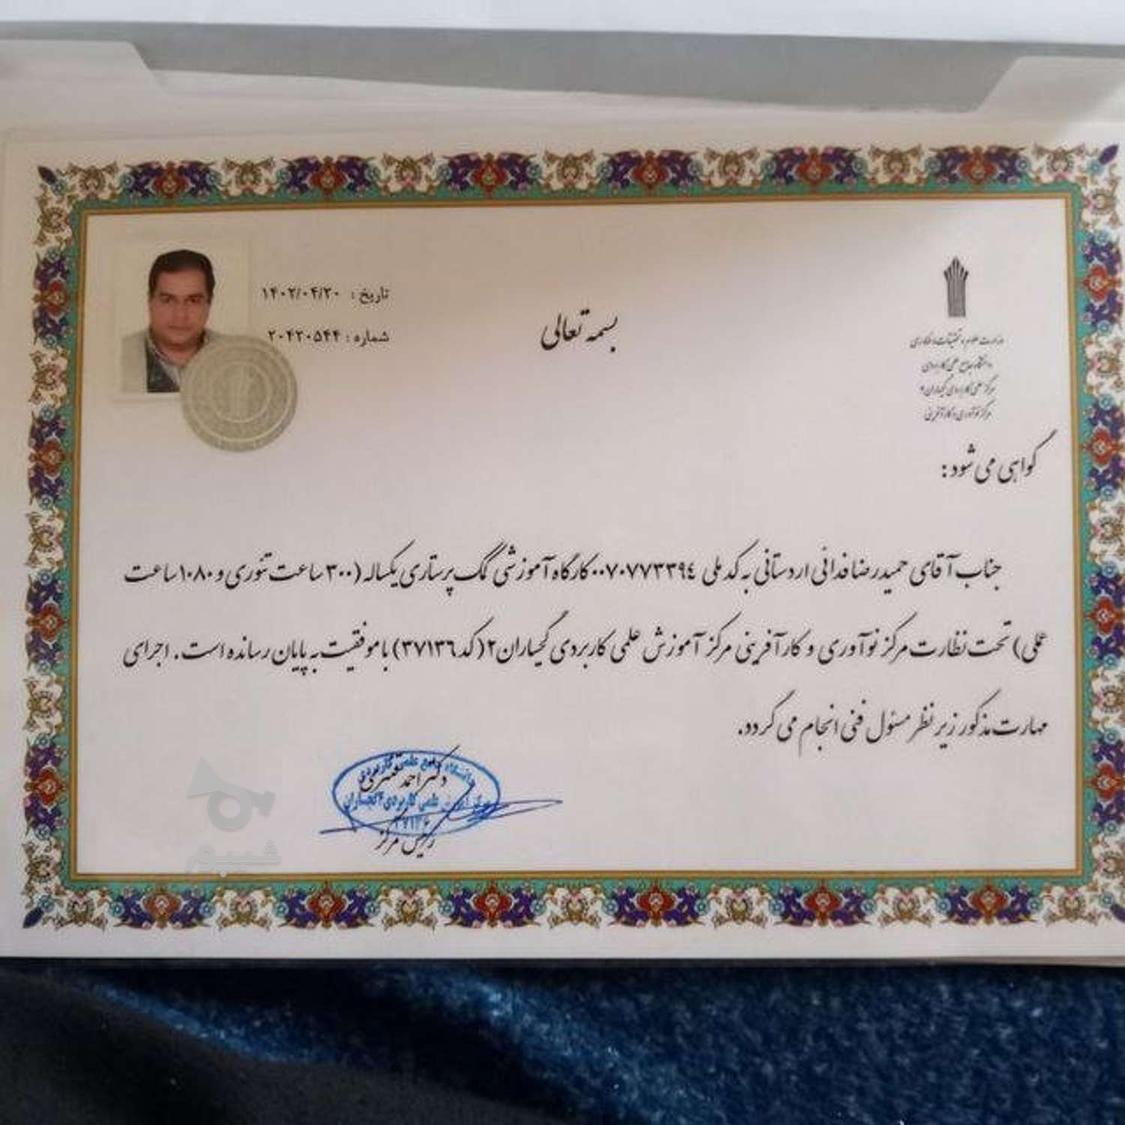 بسمه تعالی
تاریخ : ۱۴۰۲/۰۴/۲۰
شماره : ۲۰۴۲۰۵۴۴
وزارت علوم، تحقیقات و فناوری
دانشگاه جامع علمی کاربردی
مرکز علمی کاربردی گچساران ۲
مرکز نوآوری و کارآفرینی
گواهی می شود :
جناب آقای حمیدرضا فدائی اردستانی به کد ملی ۰۰۷۰۷۷۳۳۹۴ کارگاه آموزشی کمک پرستاری یکساله (۳۰۰ ساعت تئوری و ۱۰۸۰ ساعت
عملی) تحت نظارت مرکز نوآوری و کارآفرینی مرکز آموزش علمی کاربردی گچساران۲(کد ۳۷۱۳۶) با موفقیت به پایان رسانده است. اجرای
مهارت مذکور زیر نظر مسئول فنی انجام می گردد.
دانشگاه جامع علمی کاربردی
دکتر احمد
علمی کاربردی ۲ گچساران
۳۷۱۳۶
رئیس مرکز
شیپور